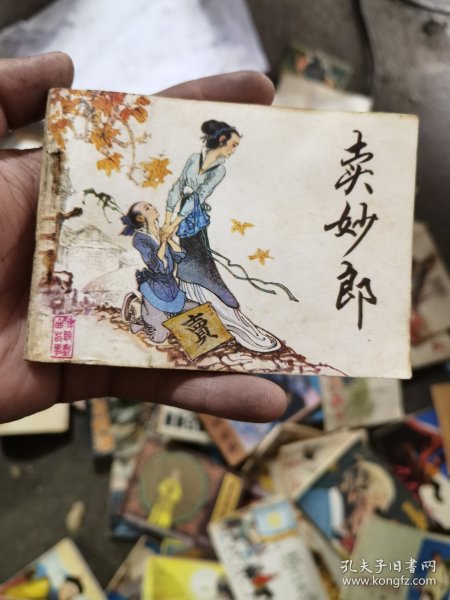 卖妙郎
賣
孔夫子旧书网
www.kongfz.com